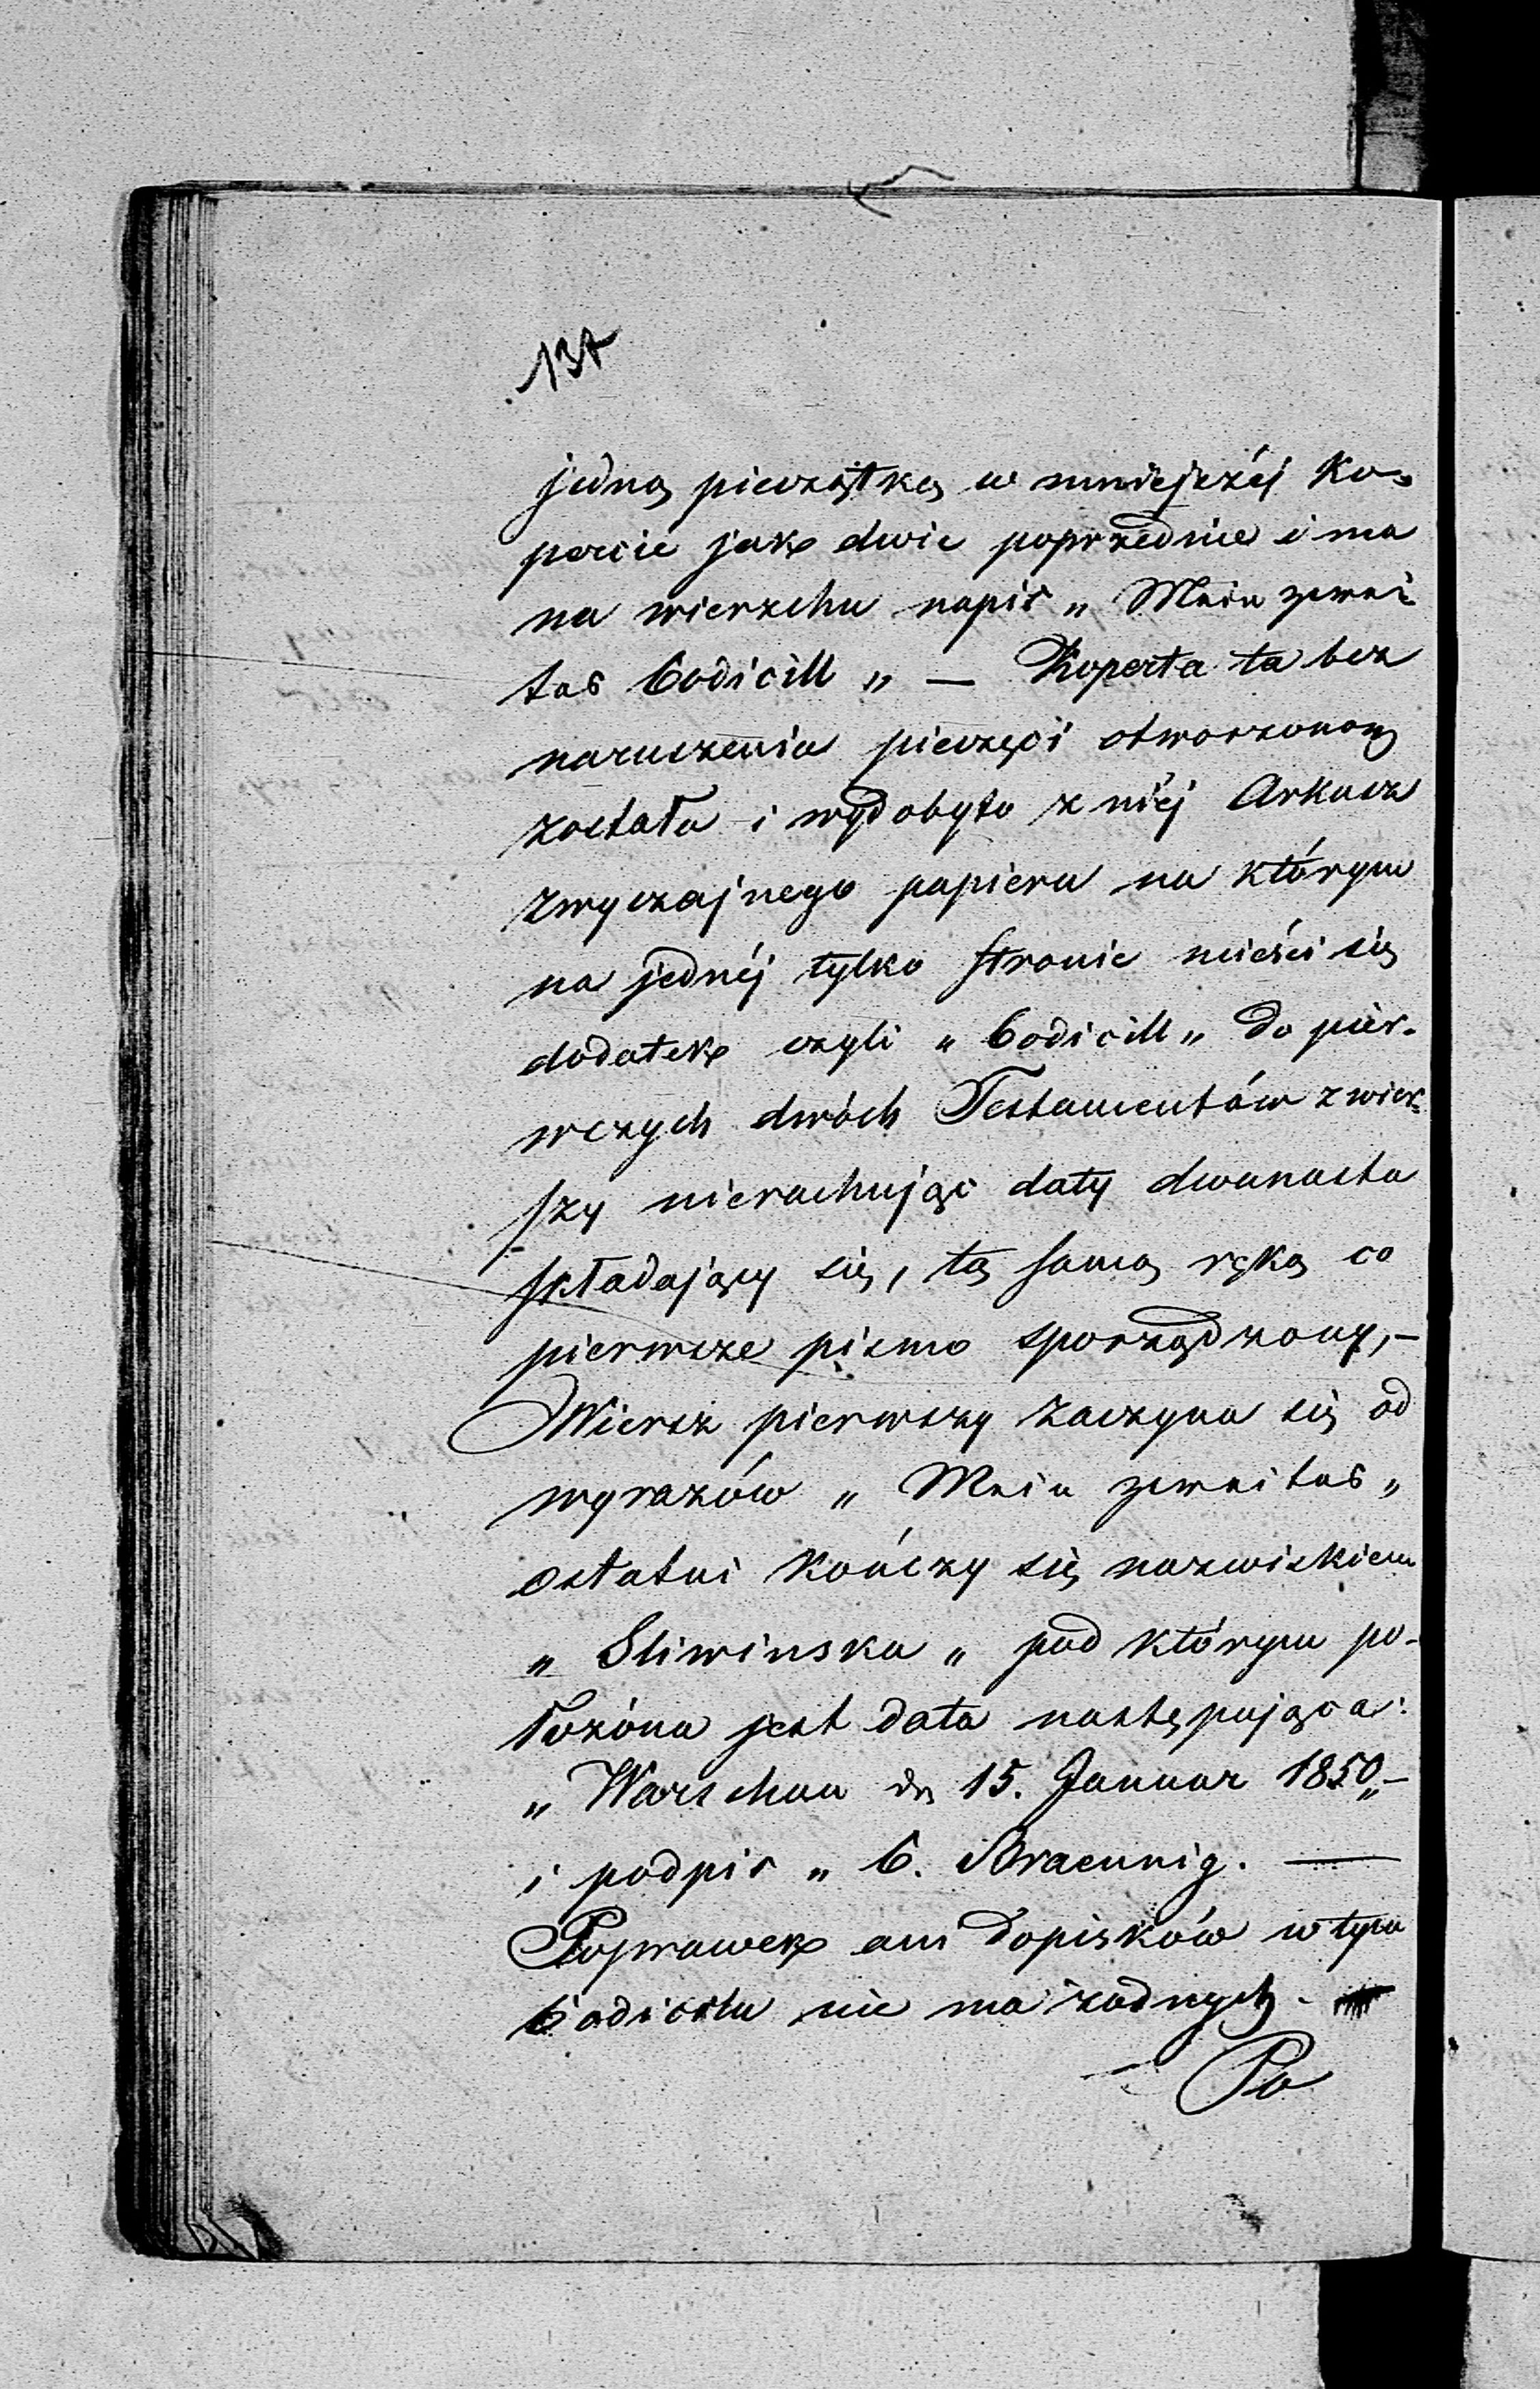 137
jedną pieczątką w mniejszéj Ko=
percie jak dwie poprzednie i ma
na wierzchu napis „ Mein zwei=
tes Codicill „ — Koperta ta bez
naruszenia pieczęci otworzoną
została i wydobyto z niéj Arkusz
zwyczajnego papieru na którym
na jednéj tylko stronie mieści się
dodatek czyli „ Codicill „ do pier-
wszych dwóch Testamentów z wier-
szy nierachując daty dwunastu
składający się, tą samą ręką co
pierwsze pismo sporządzony, —
Wiersz pierwszy zaczyna się od
wyrazów „ Mein zweites „
ostatni kończy się nazwiskiem
„ Sliwinska „ pod którym po-
łożóna jest data następująca:
„ Warschau dn 15. Januar 1850„ —
i podpis „ C. Braeunig. —
Poprawek ani dopisków w tym
Codicilu nie ma żadnych. —
Po